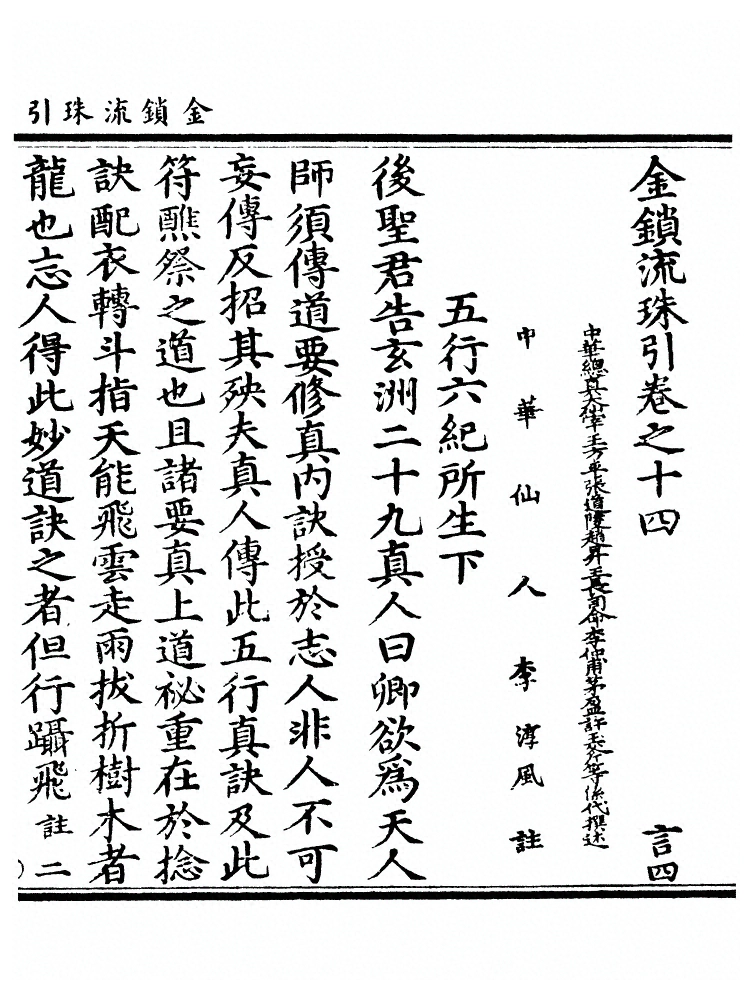 金鎖流珠引
金鎖流珠引卷之十四
言四
中華總真大仙宰王方平張道陵趙昇王長司命李仲甫茅盈許玉斧等係代撰述
中華仙人李淳風註
五行六紀所生下
後聖君告玄洲二十九真人曰卿欲爲天人
師須傳道要修真内訣授於志人非人不可
妄傳反招其殃夫真人傳此五行真訣及此
符醮祭之道也且諸要真上道祕重在於捻
訣配衣轉斗指天能飛雲走雨拔折樹木者
龍也忘人得此妙道訣之者但行躡飛註二